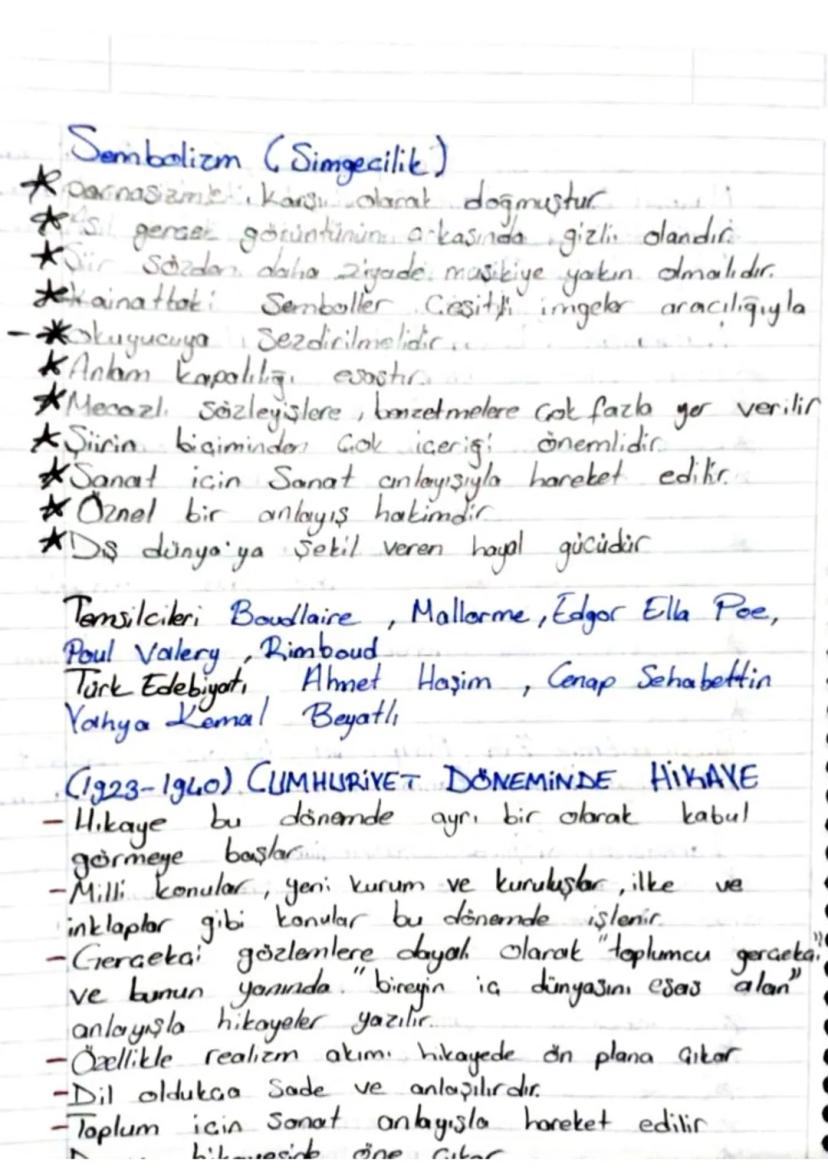 Sembolizm (Simgecilik)
★ Parnasizme karşı olarak doğmuştur
★ Asıl gerçek görüntünün arkasında gizli olandır.
★ Şiir sözden daha ziyade musikiye yakın olmalıdır.
★ Kainattaki Semboller Çeşitli imgeler aracılığıyla
- ★ okuyucuya Sezdirilmelidir.
★ Anlam kapalılığı esastır.
★ Mecazlı sözleyişlere, benzetmelere çok fazla yer verilir
★ Şiirin biçiminden çok içeriği önemlidir.
★ Sanat için Sanat anlayışıyla hareket edilir.
★ Öznel bir anlayış hakimdir
★ Dış dünya'ya şekil veren hayal gücüdür
Temsilcileri Boudlaire, Mallorme, Edgar Ella Poe,
Poul Valery, Rimboud
Türk Edebiyatı Ahmet Haşim, Cenap Sehabettin
Yahya Kemal Beyatlı
(1923-1940) CUMHURİYET DÖNEMİNDE HİKAYE
- Hikaye bu dönemde ayrı bir olarak kabul
görmeye başlar.
- Milli konular, yeni kurum ve kuruluşlar, ilke ve
inklaplar gibi konular bu dönemde işlenir.
- Gerçekçi gözlemlere dayalı olarak "toplumcu gerçekçi"
ve bunun yanında "bireyin iç dünyasını esas alan"
anlayışla hikayeler yazılır.
- Özellikle realizm akımı hikayede ön plana çıkar
- Dil oldukça Sade ve anlaşılırdır.
- Toplum için Sanat anlayışla hareket edilir
öne çıkar